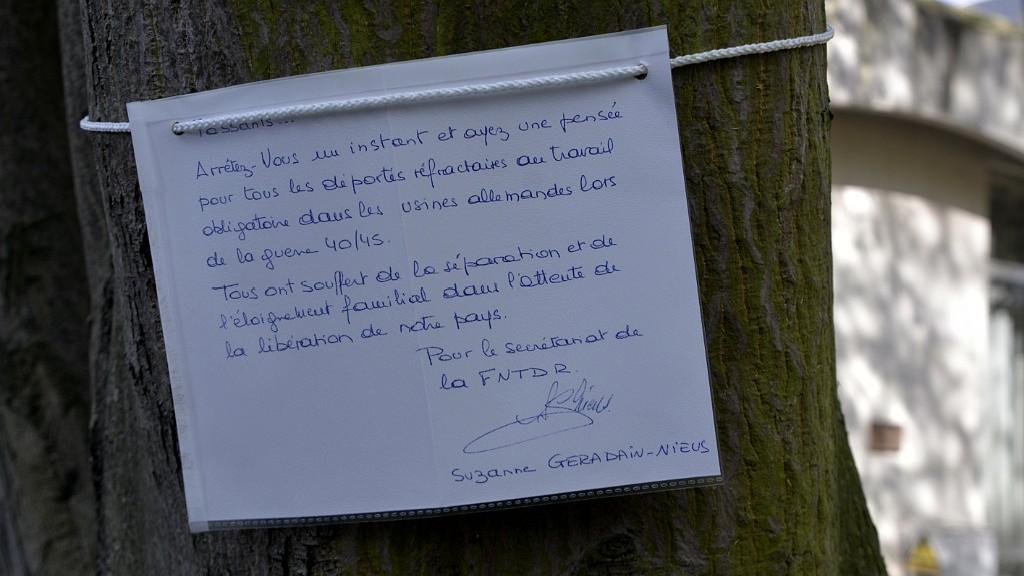 Passants...
Arrêtez-Vous un instant et ayez une pensée
pour tous les déportés réfractaires au travail
obligatoire dans les usines allemandes lors
de la guerre 40/45.
Tous ont souffert de la séparation et de
l'éloignement familial dans l'attente de
la libération de notre pays.
Pour le secrétariat de
la FNTDR.
Suzanne GERADAIN-NIEUS